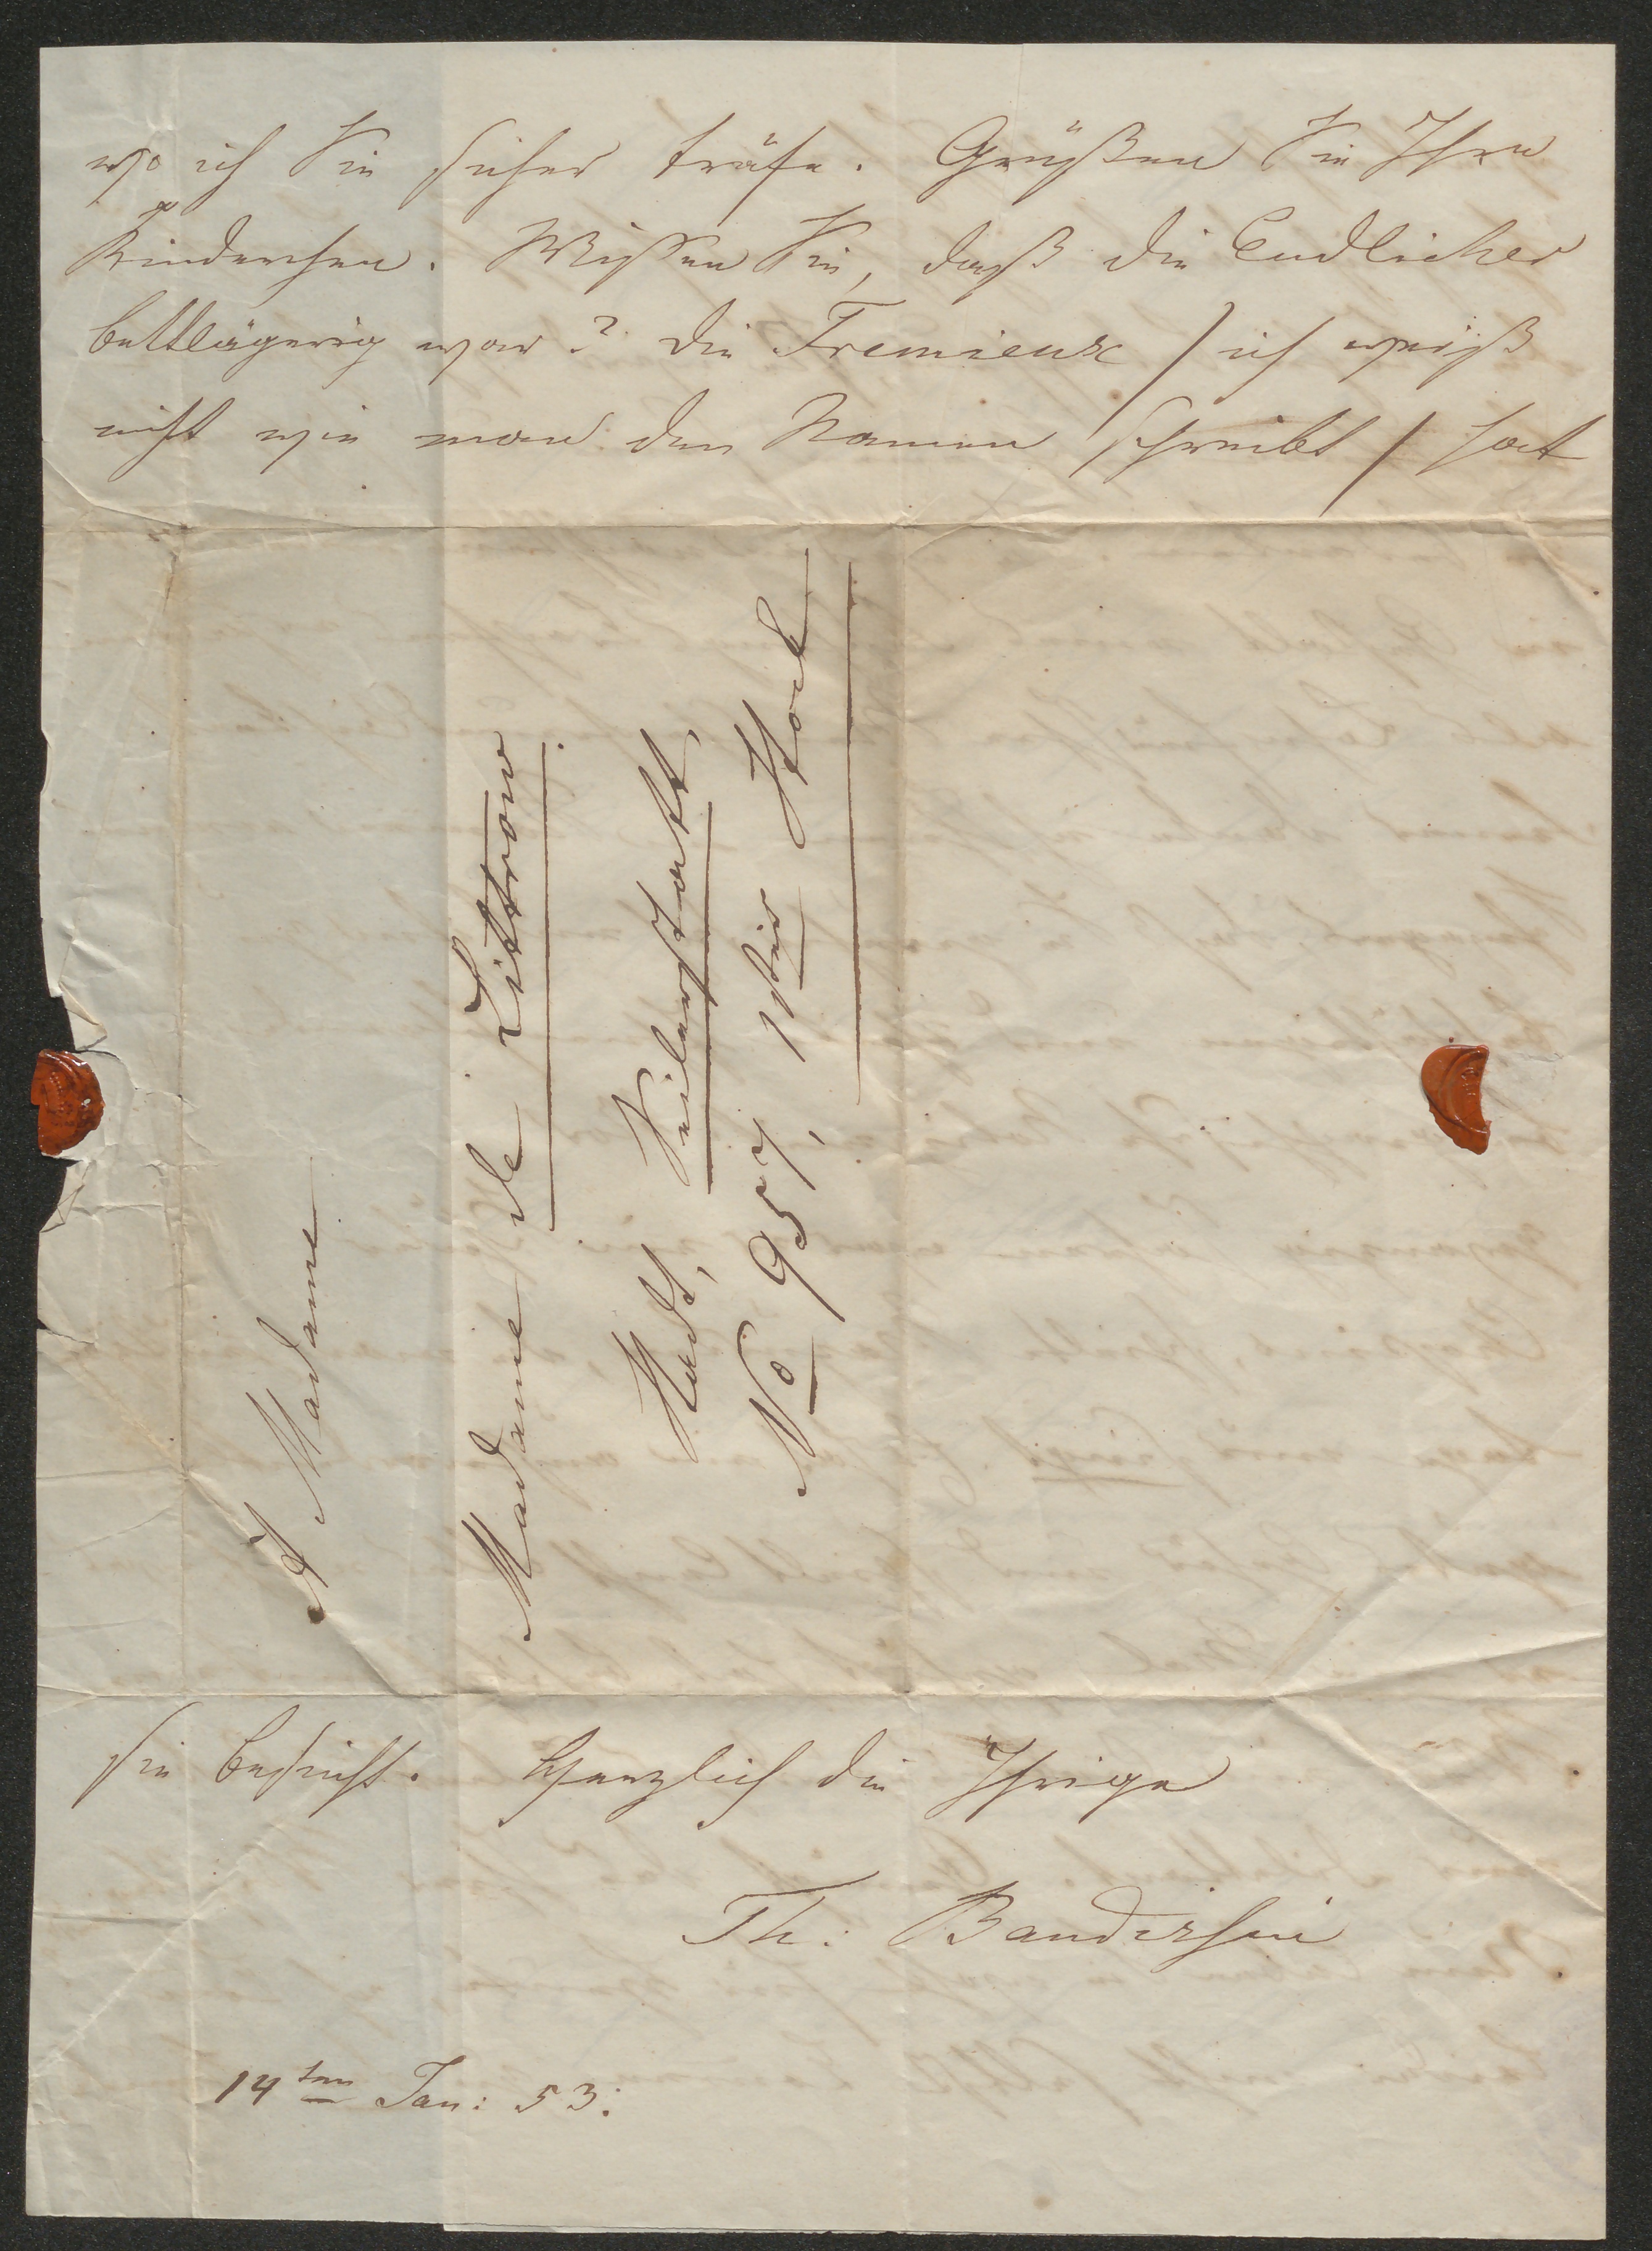 wo ich Sie sicher träfe. Grüßen Sie Ihre
Kinderchen. Wissen Sie, daß die Endlicher
bettlägerig war? die Fremieux / ich weiß
nicht wie man den Namen schreibt / hat
À Madame
Madame de Littrow
Stadt, Seilerstatt
No 957, 1ster Stock
sie besucht. Herzlich die Ihrige
Th: Baudissin
14ten Jan: 53.